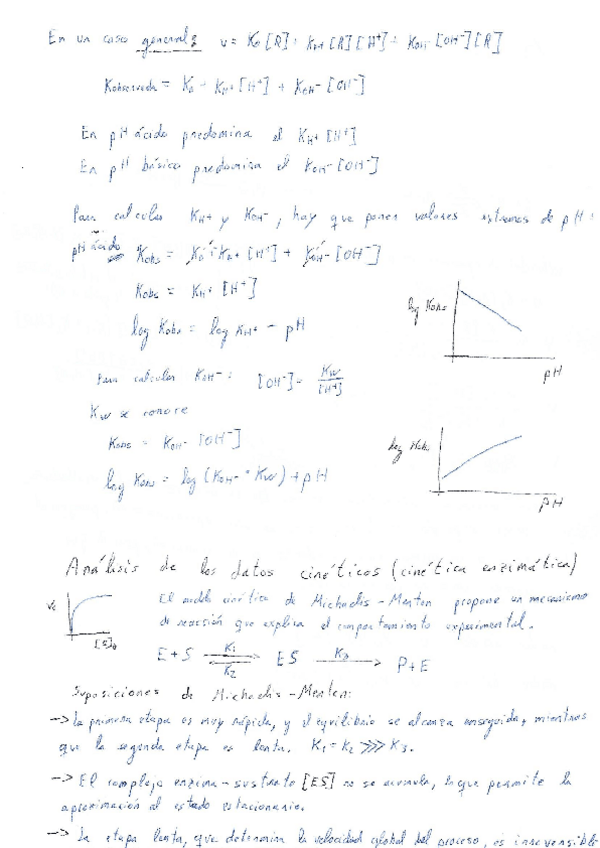 En un caso general: v = K₀[R] + K_H+ [R][H⁺] + K_OH- [OH⁻][R]
Kobservada = K₀ + K_H+ [H⁺] + K_OH- [OH⁻]
En pH ácido predomina el K_H+ [H⁺]
En pH básico predomina el K_OH- [OH⁻]
Para calcular K_H+ y K_OH-, hay que poner valores extremos de pH:
pH ácido Kobs = K₀ + K_H+ [H⁺] + K_OH- [OH⁻]
Kobs = K_H+ [H⁺]
log Kobs = log K_H+ - pH
log Kobs
pH
Para calcular K_OH-: [OH⁻] = Kw/[H⁺]
Kw se conoce
Kobs = K_OH- [OH⁻]
log Kobs = log (K_OH- * Kw) + pH
log Kobs
pH
Análisis de los datos cinéticos (cinética enzimática)
V₀
[S]₀
El modelo cinético de Michaelis-Menten propone un mecanismo
de reacción que explica el comportamiento experimental.
E + S ⇌ ES → P + E
K₁
K₂
K₃
Suposiciones de Michaelis-Menten:
-> la primera etapa es muy rápida, y el equilibrio se alcanza enseguida, mientras
que la segunda etapa es lenta. K₁ = K₂ >>> K₃.
-> El complejo enzima-sustrato [ES] no se acumula, lo que permite la
aproximación al estado estacionario.
-> La etapa lenta, que determina la velocidad global del proceso, es irreversible